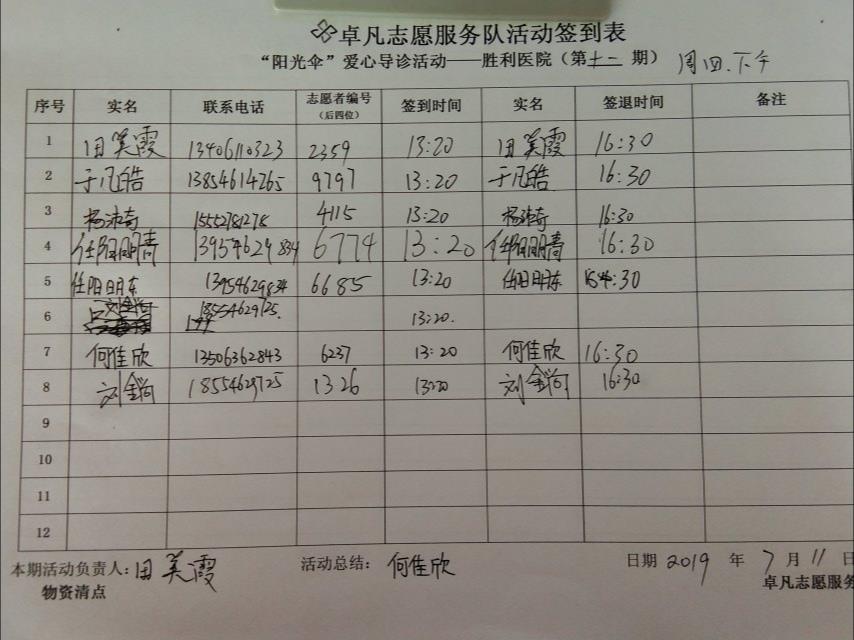 卓凡志愿服务队活动签到表
“阳光伞”爱心导诊活动——胜利医院（第十二期） 周四.下午
序号 实名 联系电话 志愿者编号（后四位） 签到时间 实名 签退时间 备注
1 田美霞 13406110323 2359 13:20 田美霞 16:30
2 于凡皓 13854614265 9797 13:20 于凡皓 16:30
3 杨沛奇 15552781278 4115 13:20 杨沛奇 16:30
4 任阳朋青 13954629834 6774 13:20 任阳朋青 16:30
5 任阳明东 13954629834 6685 13:20 任阳明东 :30
6 18554629125. 13:20.
7 何佳欣 13506362843 6237 13:20 何佳欣 16:30
8 刘 18554629725 1326 13:20 刘 16:30
9
10
11
12
本期活动负责人：田美霞 活动总结：何佳欣 日期 2019 年 7 月 11 日
物资清点 卓凡志愿服务